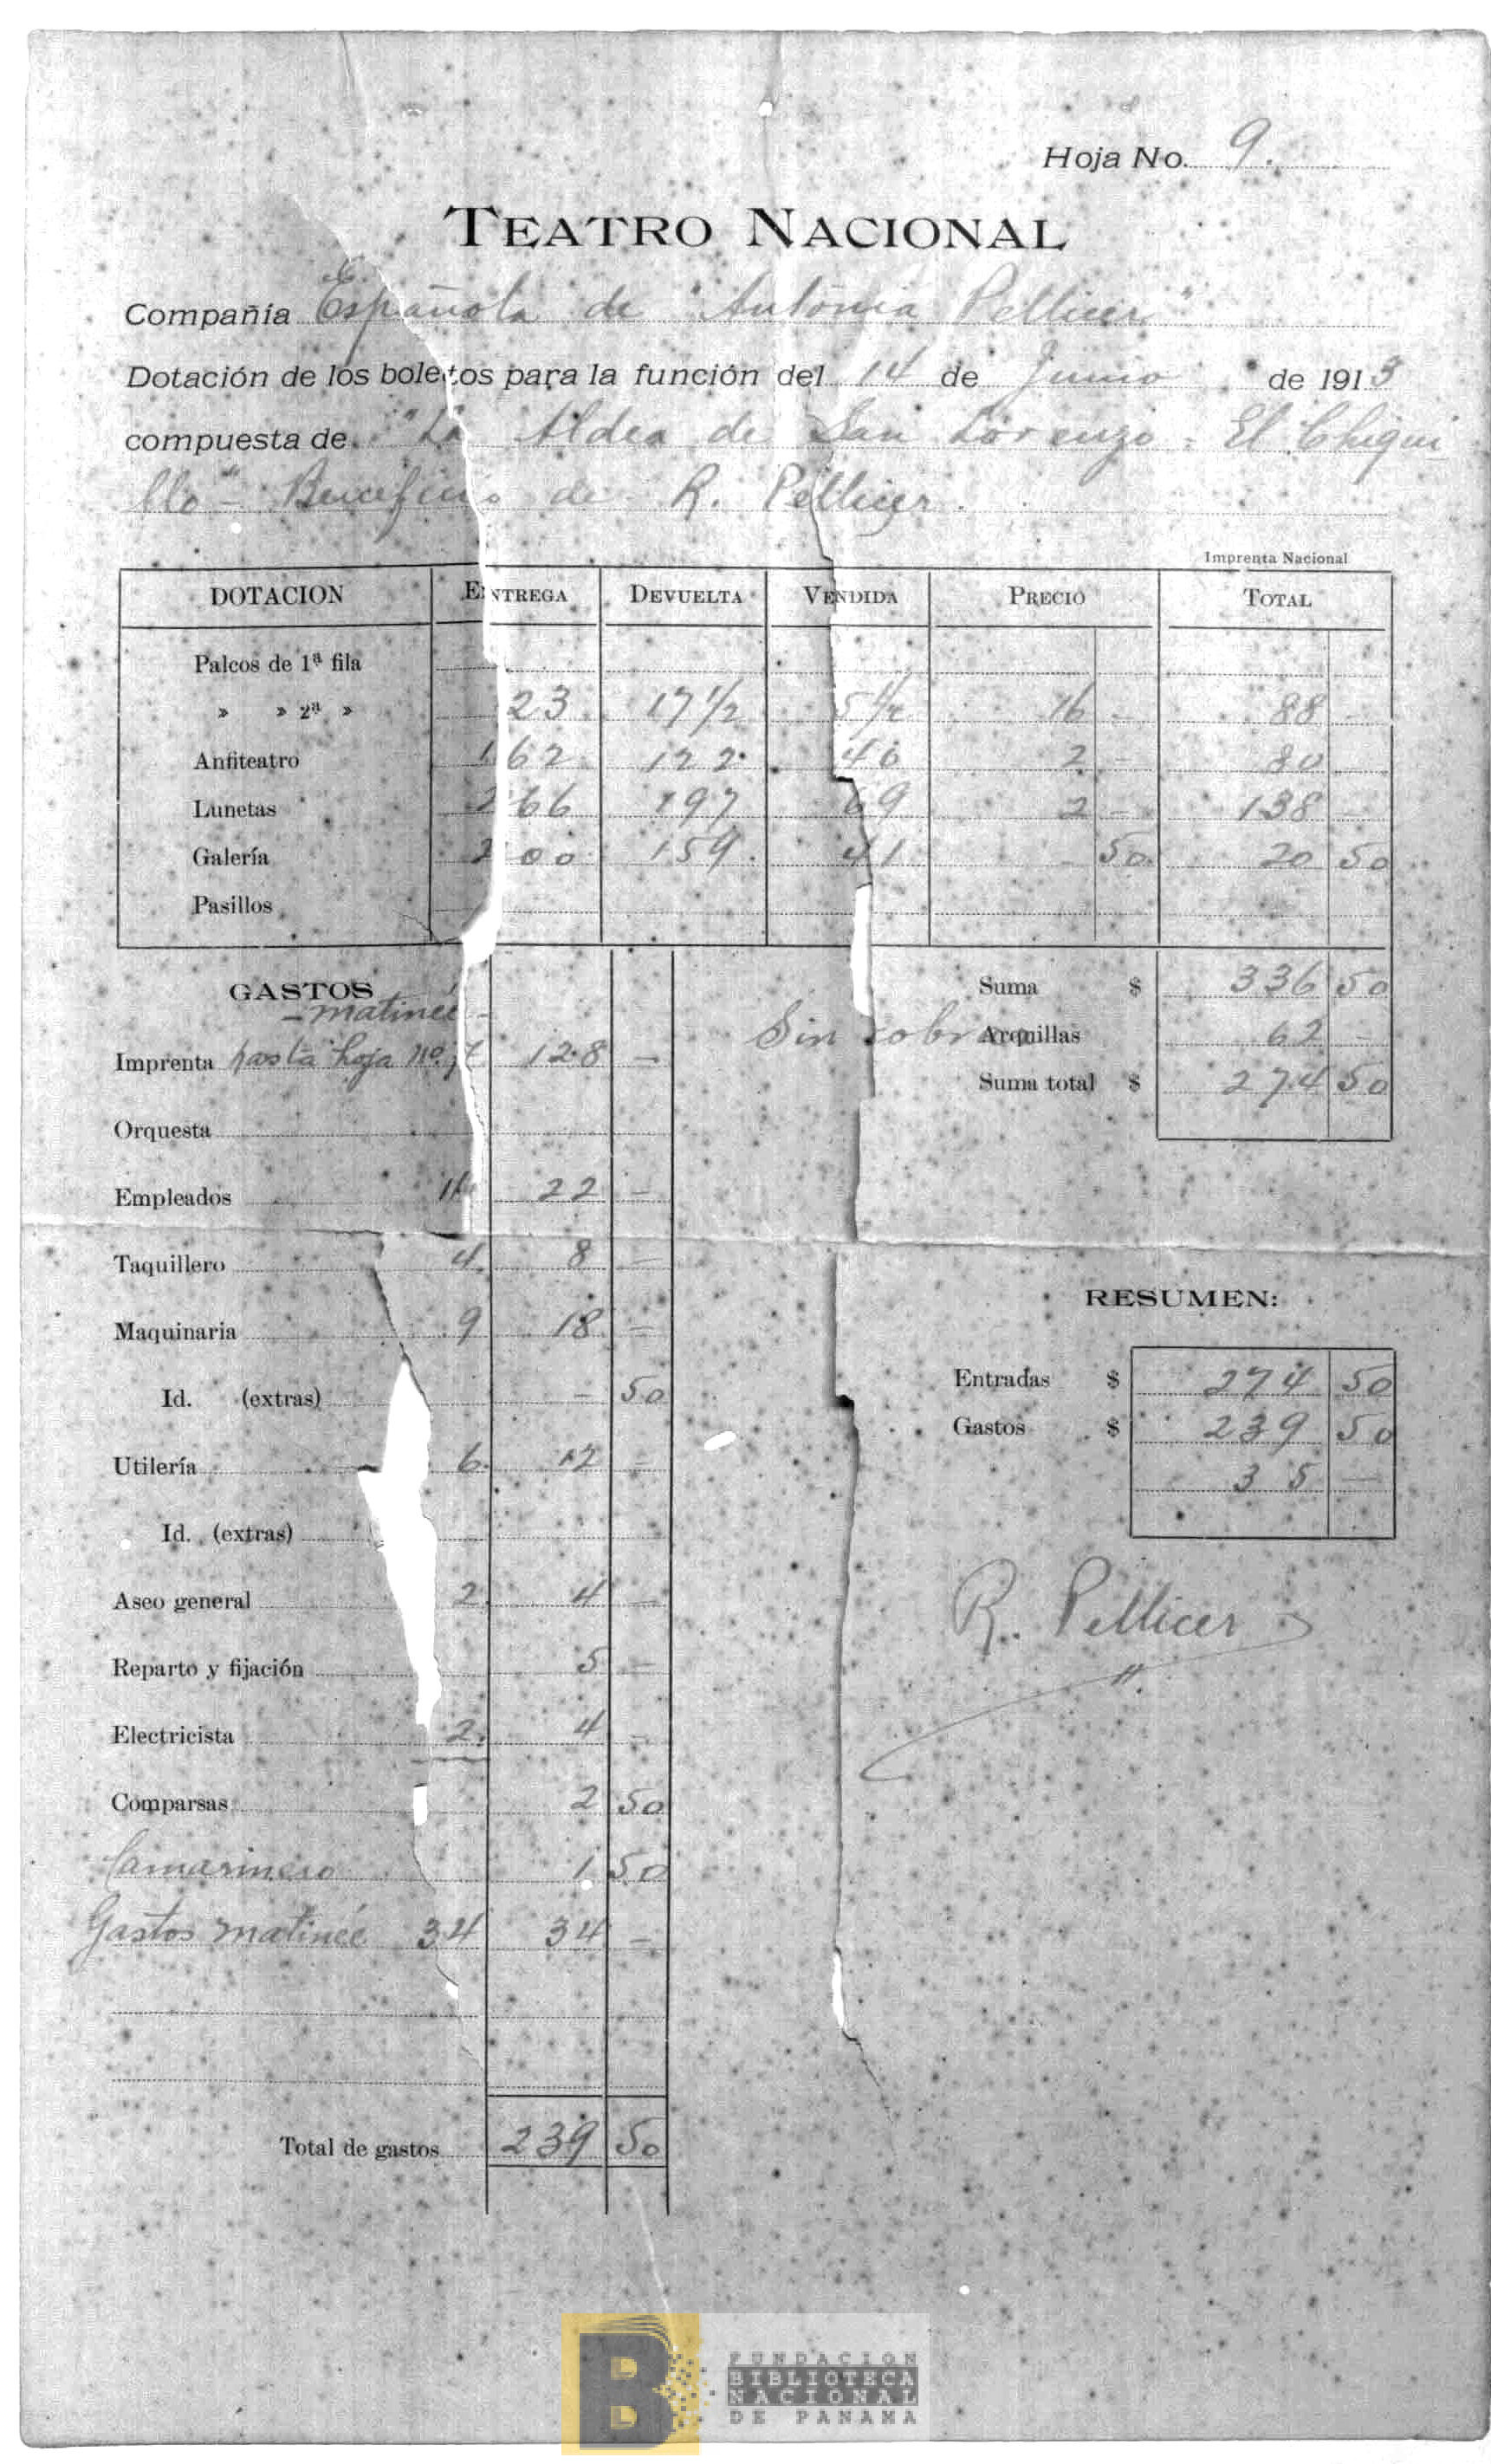 Hoja No. 9.
TEATRO NACIONAL
Compañía Española de "Antonia Pellicer"
Dotación de los boletos para la función del 14 de Junio de 1913
compuesta de "La Aldea de San Lorenzo = El Chiqui
llo" - Beneficio de R. Pellicer.
Imprenta Nacional
DOTACION ENTREGA DEVUELTA VENDIDA PRECIO TOTAL
Palcos de 1ª fila
» » 2ª » 23 17 1/2 5 1/2 16 - 88 -
Anfiteatro 162 122 40 2 - 80 -
Lunetas 266 197 69 2 - 138 -
Galería 200 159 41 - 50 20 50
Pasillos
GASTOS
- matinée -
Suma $ 336 50
Sin cobrar
Arquillas 62 -
Imprenta hasta hoja no. 128 -
Suma total $ 274 50
Orquesta
Empleados 22 -
Taquillero 4 8 -
Maquinaria 9 18 -
Id. (extras) - 50
Utilería 6 12 -
Id. (extras)
Aseo general 2 4 -
Reparto y fijación 5 -
Electricista 2 4 -
Comparsas 2 50
Camarinero 1 50
Gastos matinée 34 34 -
Total de gastos 239 50
RESUMEN:
Entradas $ 274 50
Gastos $ 239 50
35 -
R. Pellicer
FUNDACION
BIBLIOTECA
NACIONAL
DE PANAMA